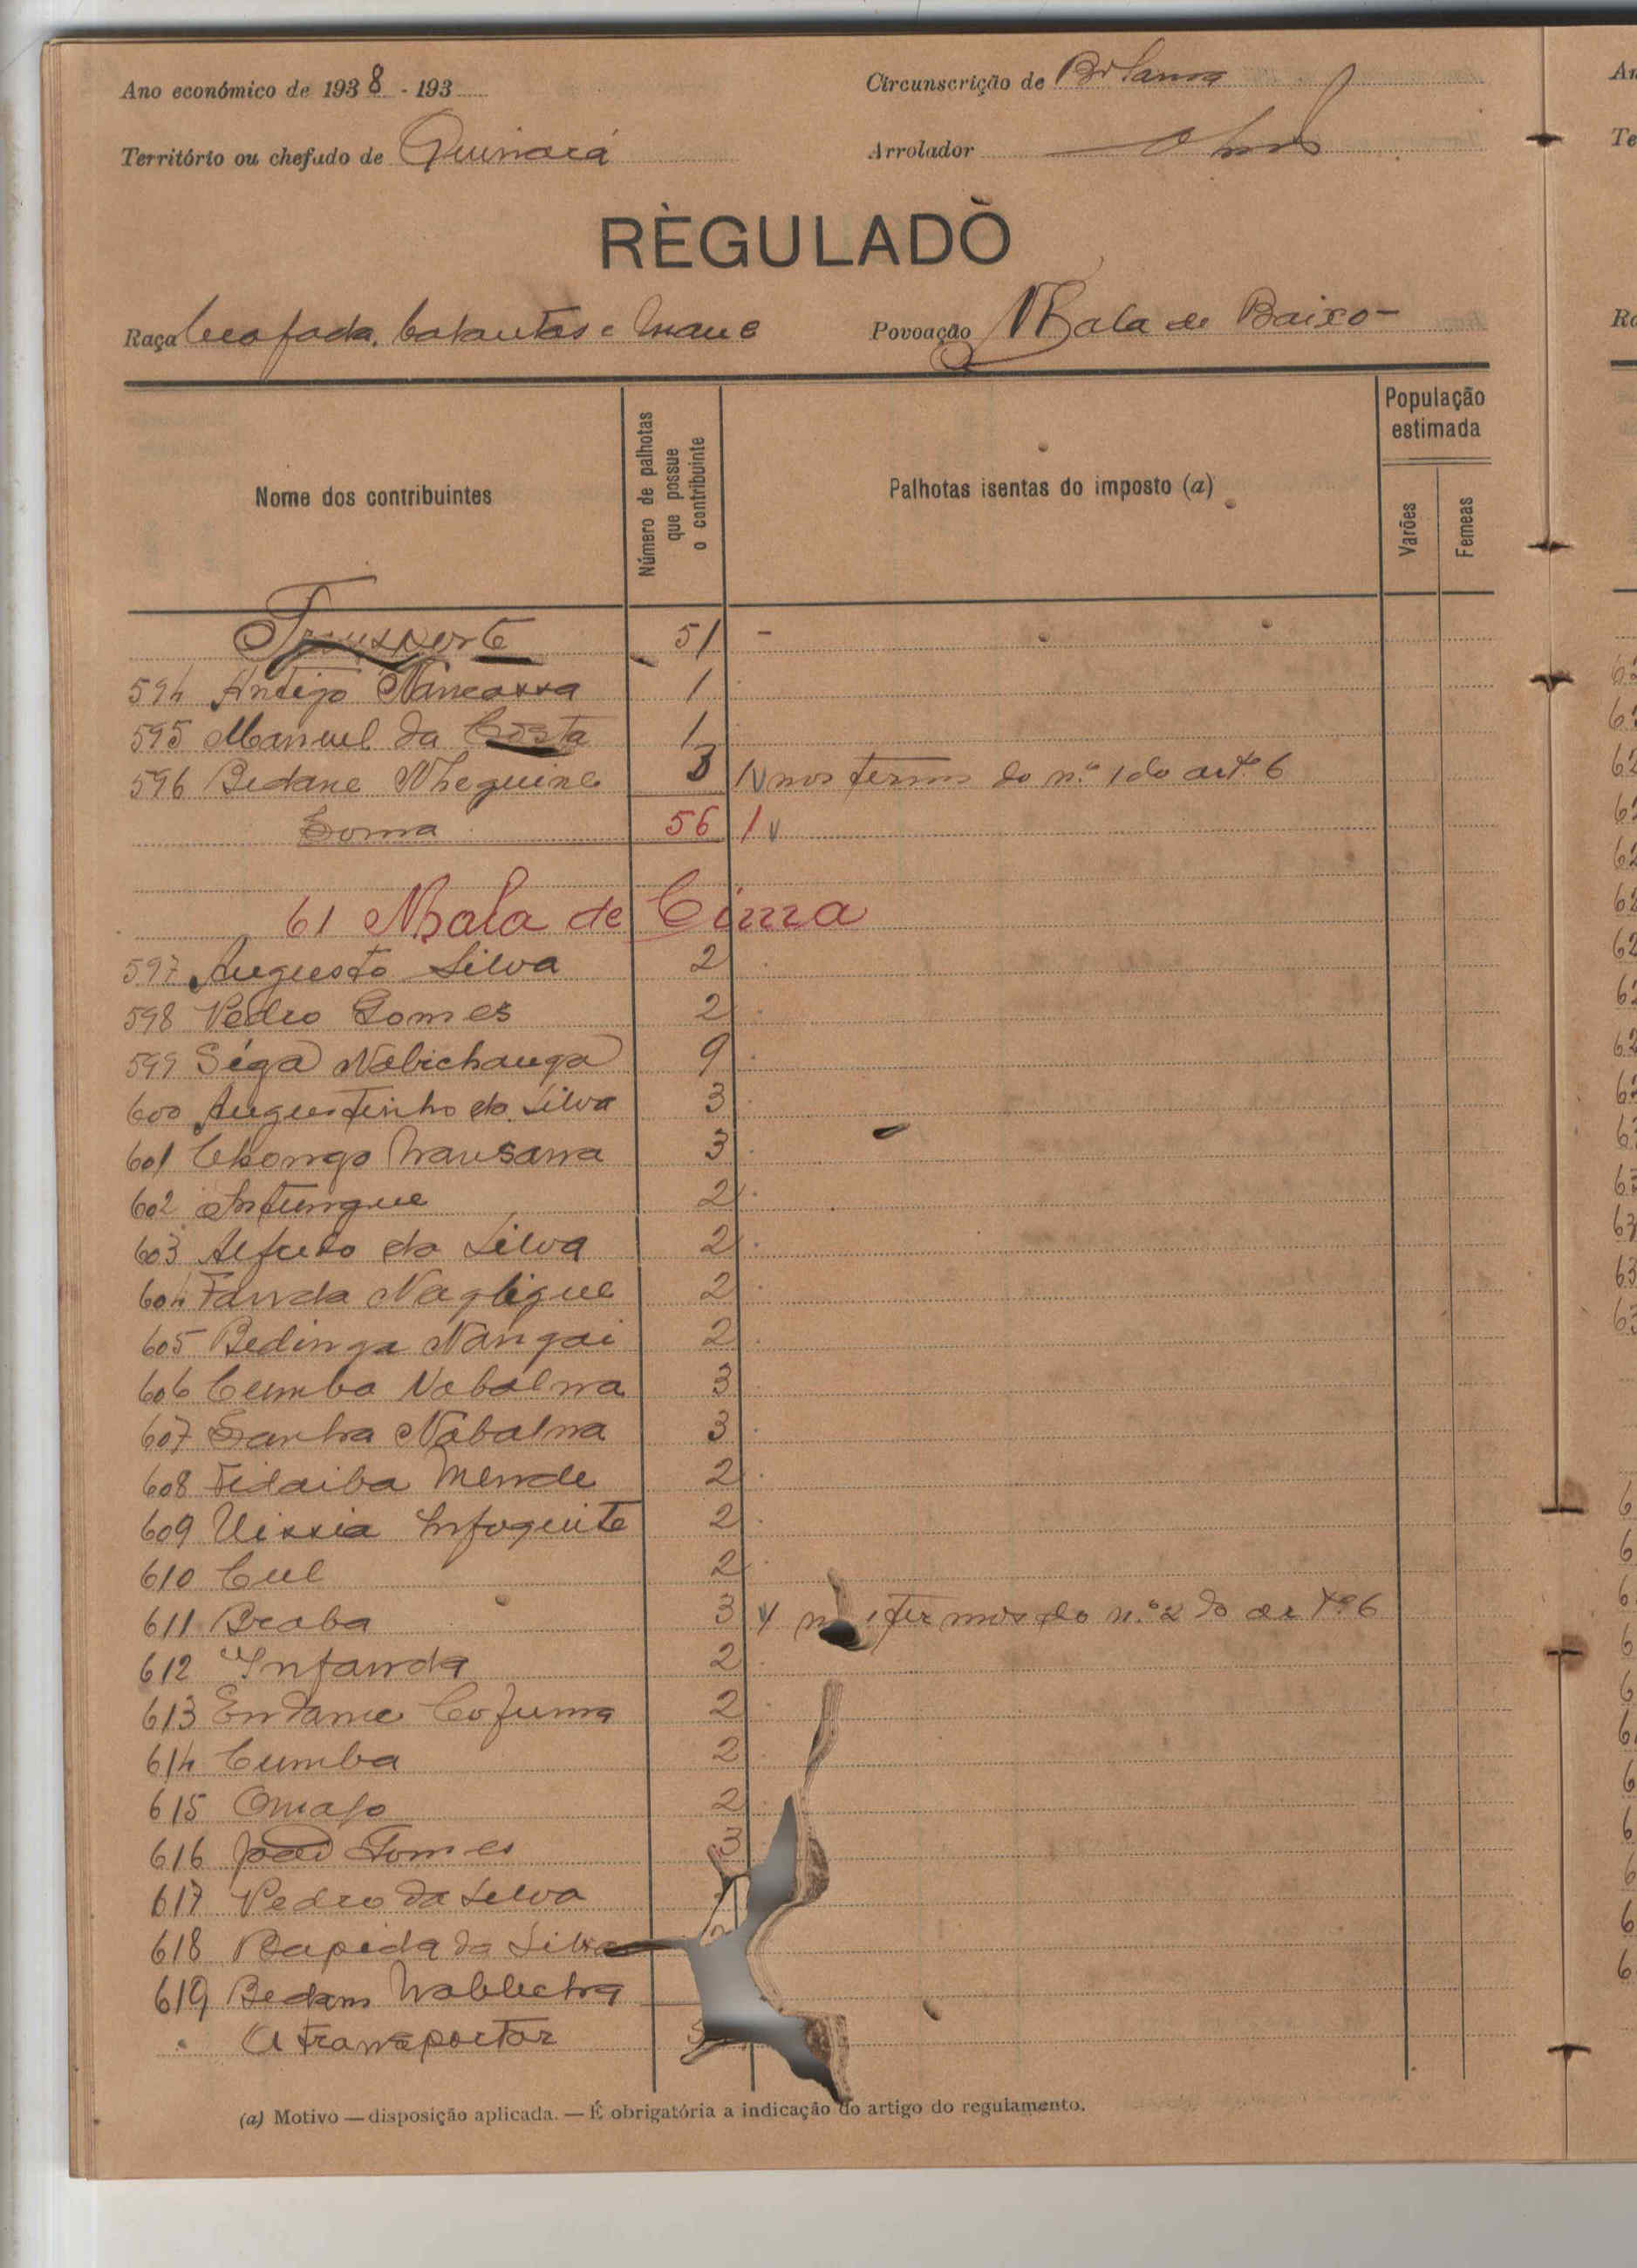 Ano económico de 1938 - 193
Circunscrição de Bolama
Território ou chefado de Quinará
Arrolador
REGULADO
Raça Beafada, balantas e mane
Povoação Nhala de Baixo -
Nome dos contribuintes
Número de palhotas que possue o contribuinte
Palhotas isentas do imposto (a)
População estimada
Varões
Femeas
Transporte 51 -
594 Antigo Nancassa 1
595 Manuel da Costa 1
596 Bedane Nhaguine 3 1 v nos termos do n.º 1 do artº 6
Soma 56 1 v
61 Nhala de Cima
597 Augusto Silva 2
598 Pedro Gomes 2
599 Séga Nabichanga 9
600 Augustinho da Silva 3
601 Chongo Nansana 3
602 Intungue 2
603 Alfredo da Silva 2
604 Fanda Nagligue 2
605 Bedinga Nangai 2
606 Cumba Nabalna 3
607 Sanha Nabalna 3
608 Fidaiba Mende 2
609 Uissia Infoquite 2
610 Cul 2
611 Braba 3 v termos do n.º 2 do artº 6
612 Infanda 2
613 Endame Cofuma 2
614 Cumba 2
615 Oniafo 2
616 João Gomes 3
617 Pedro da Silva
618 Rapida da Silva
619 Bedam
A transportar
(a) Motivo — disposição aplicada. — É obrigatória a indicação do artigo do regulamento.